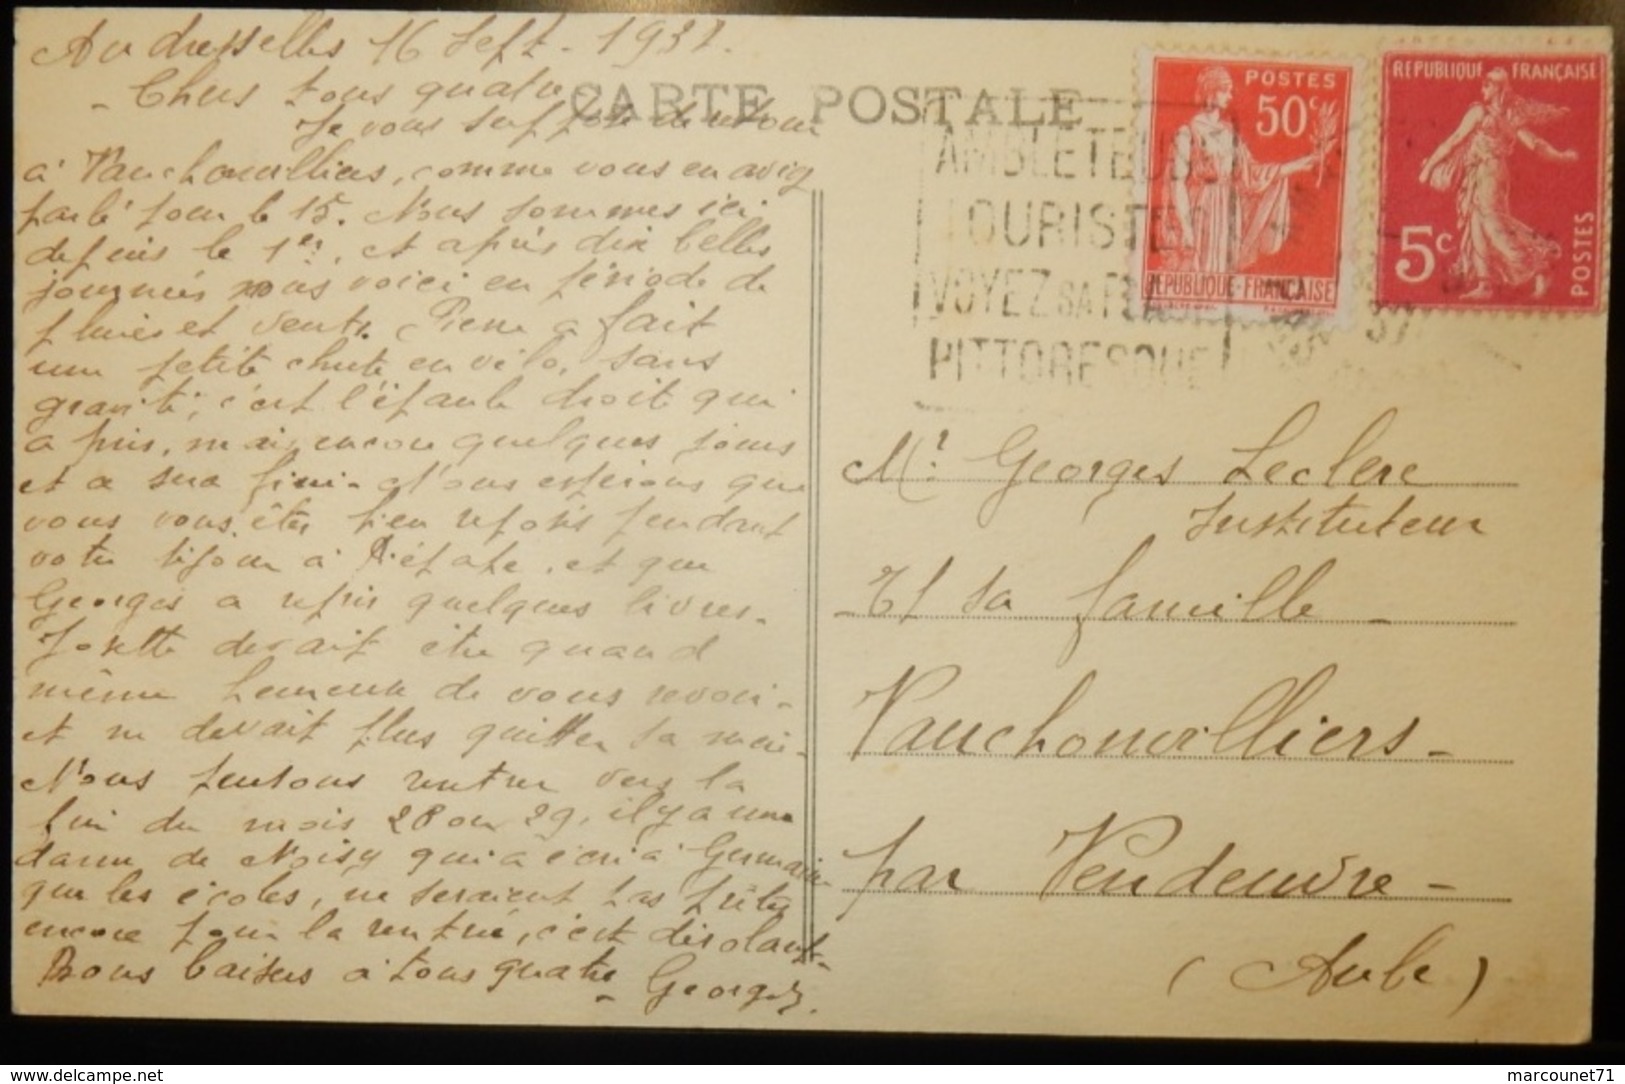 Audresselles 16 Sept. 1937.
CARTE POSTALE
- Chers tous quatre
Je vous suppose de retour
à Vauchonvilliers, comme vous en aviez
parlé pour le 15. Nous sommes ici
depuis le 1er, et après dix belles
journées nous voici en période de
pluies et vents. Pierre a fait
une petite chute en vélo, sans
gravité, c'est l'épaule droite qui
a pris, mais encore quelques jours
et ce sera fini. Nous espérons que
vous vous êtes bien reposés pendant
votre séjour à , et que
Georges a repris quelques livres.
Josette devait être quand
même heureuse de vous revoir.
et ne devait plus quitter sa
Nous pensons rentrer vers la
fin du mois 28 ou 29, il y a une
dame de Noisy qui a écrit à Germaine
que les écoles, ne seraient pas prêtes
encore pour la rentrée, c'est désolant.
Bons baisers à tous quatre
- Georges.
REPUBLIQUE FRANÇAISE
POSTES
50c
REPUBLIQUE-FRANÇAISE
5c
POSTES
AMBLETEUSE
TOURISTES
VOYEZ SA PLAGE
PITTORESQUE
37
Mr. Georges Leclerc
Instituteur
- Et sa famille -
Vauchonvilliers -
par Vendeuvre -
(Aube)
https://www.delcampe.net
marcounet71